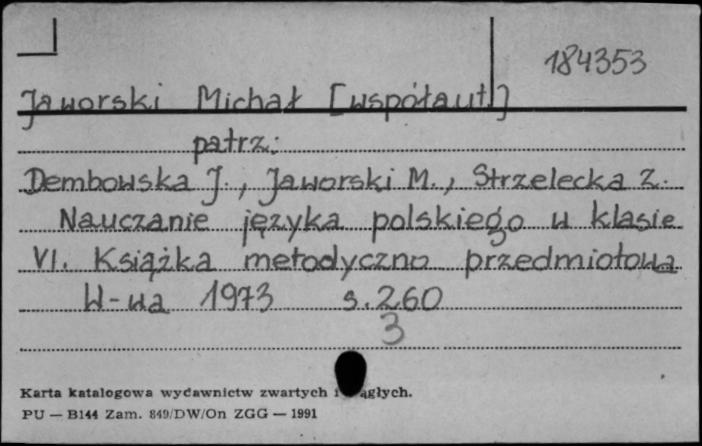 184353
Jaworski Michał [współaut.]
patrz:
Dembowska J., Jaworski M., Strzelecka Z.
Nauczanie języka polskiego w klasie
VI. Książka metodyczno przedmiotowa
W-wa 1973 s. 260
3
Karta katalogowa wydawnictw zwartych i ągłych.
PU — B144 Zam. 849/DW/On ZGG — 1991